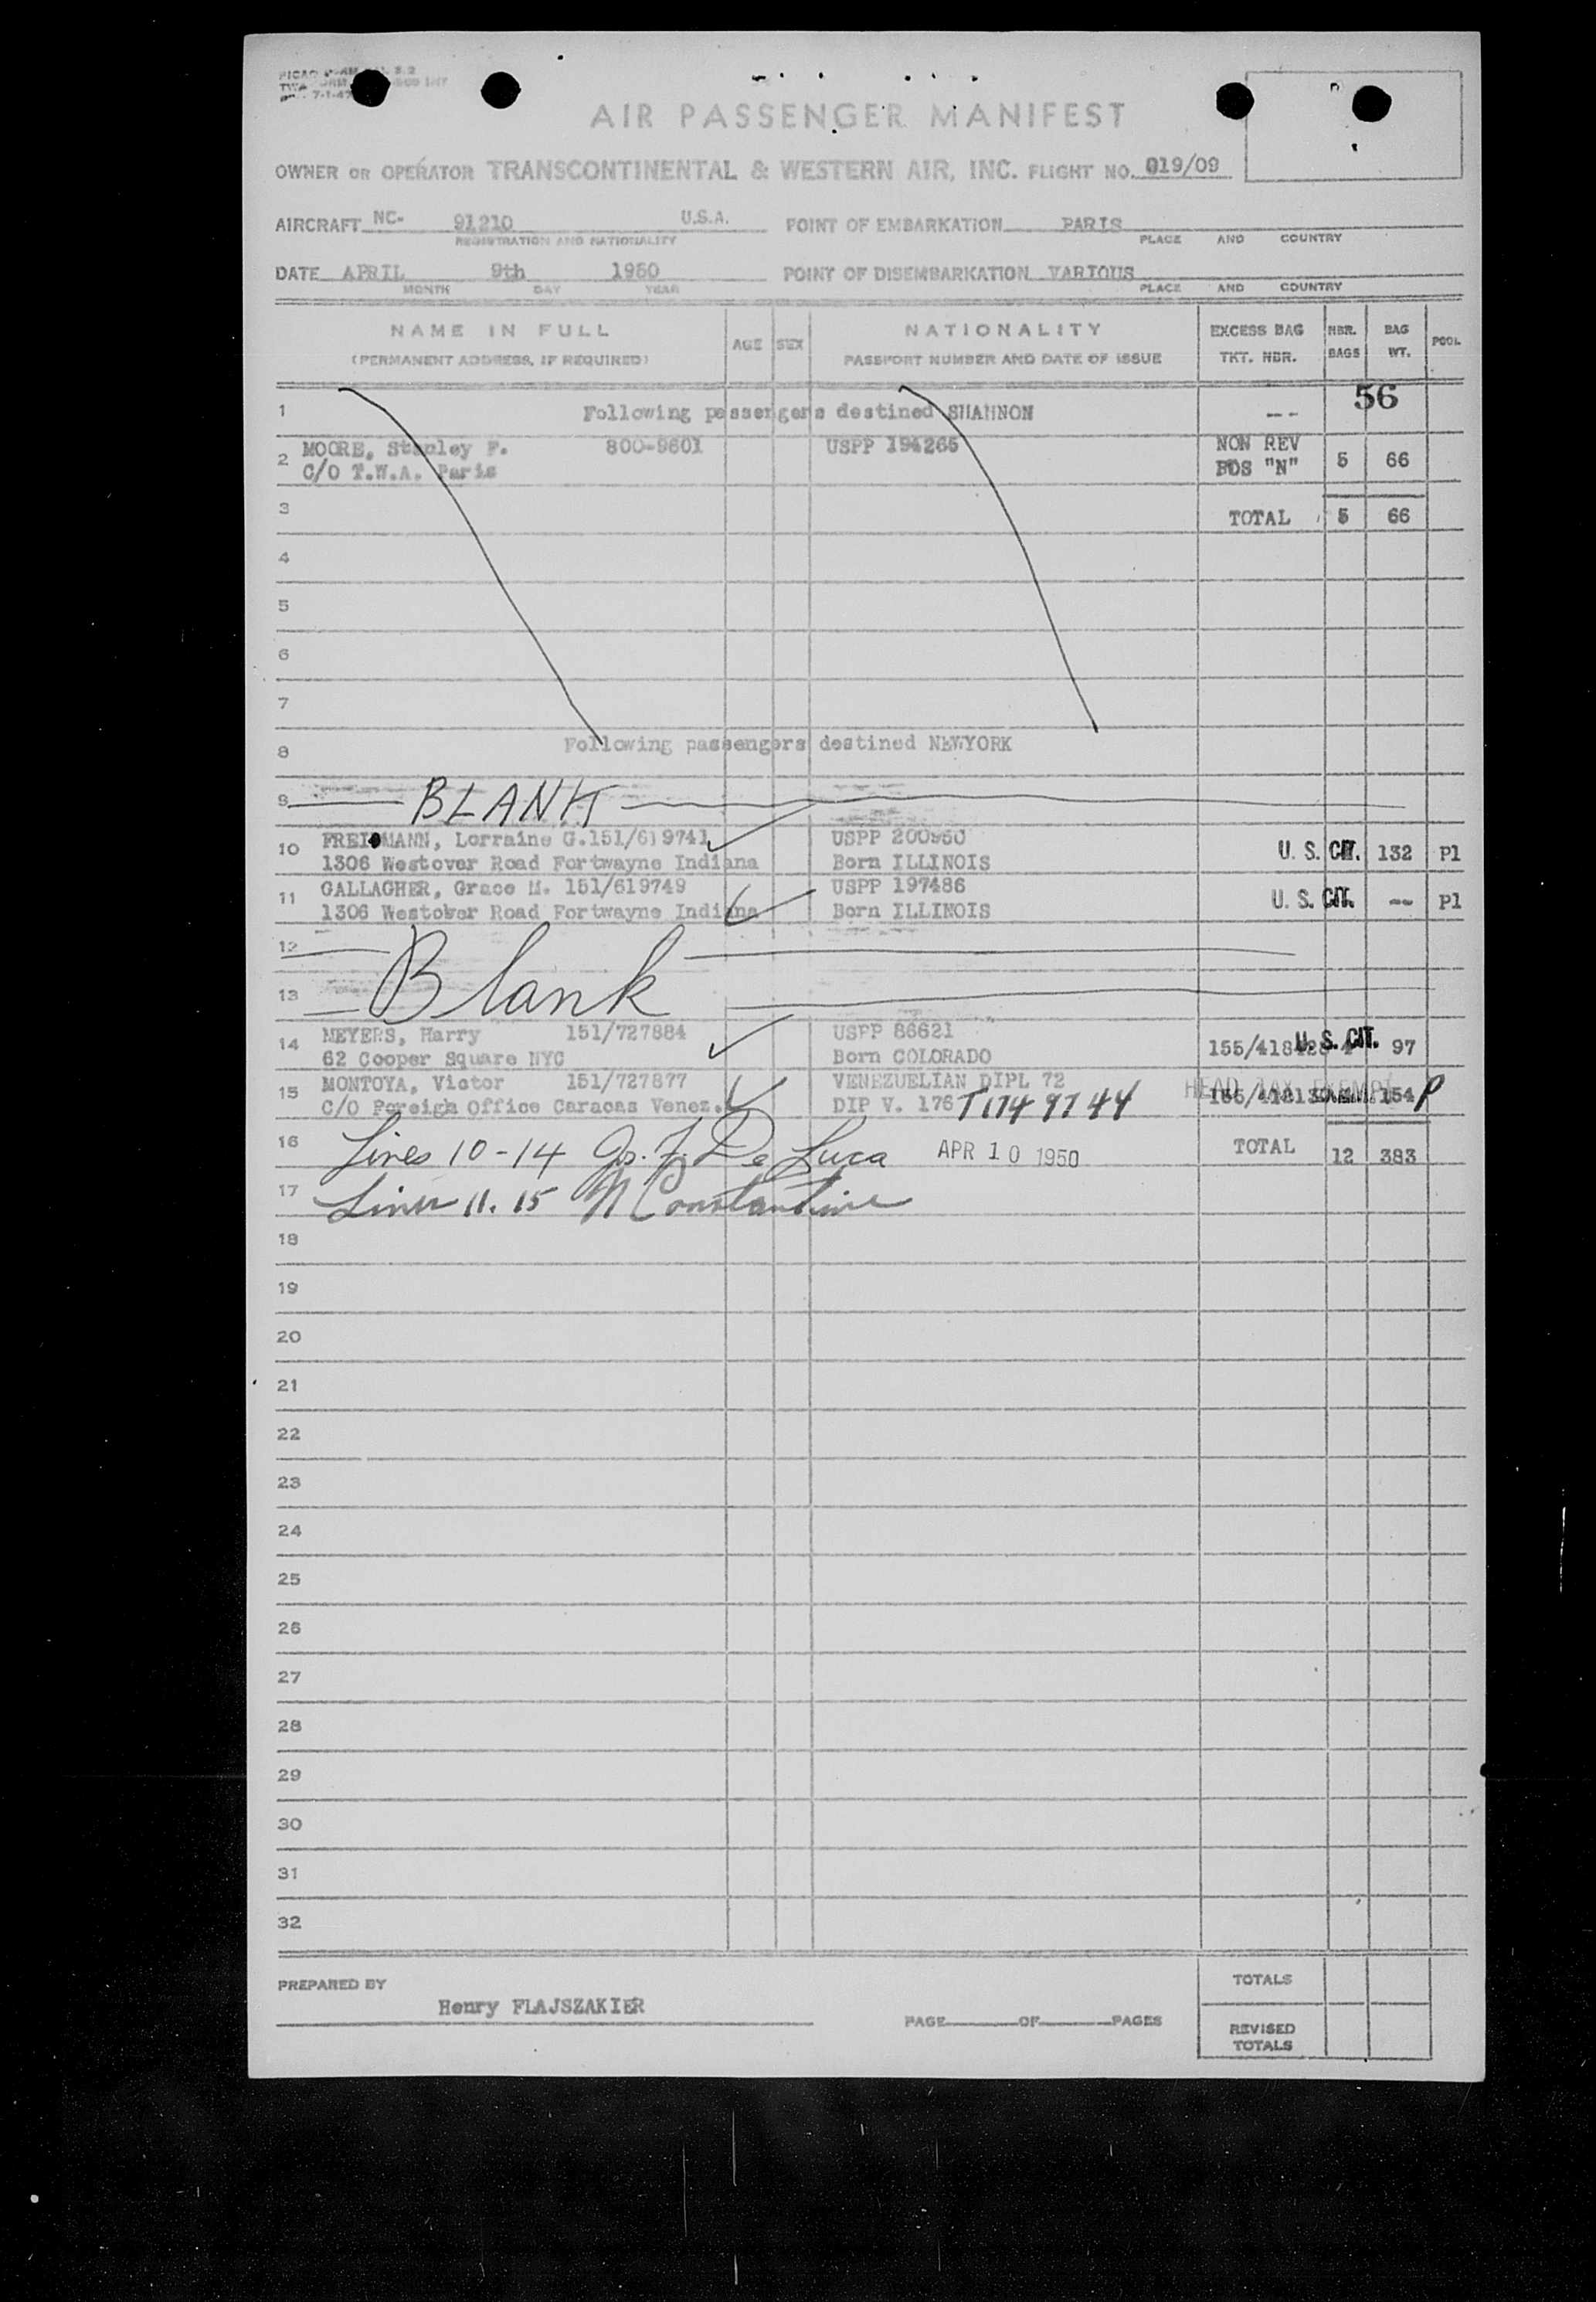 AIR PASSENGER MANIFEST
OWNER OR OPERATOR TRANSCONTINENTAL & WESTERN AIR, INC. FLIGHT NO. 019/09
AIRCRAFT NC- 91210 U.S.A. POINT OF EMBARKATION PARIS
REGISTRATION AND NATIONALITY PLACE AND COUNTRY
DATE APRIL 9th 1950 POINT OF DISEMBARKATION VARIOUS
MONTH DAY YEAR PLACE AND COUNTRY
NAME IN FULL AGE SEX NATIONALITY EXCESS BAG NBR. BAG POOL
(PERMANENT ADDRESS, IF REQUIRED) PASSPORT NUMBER AND DATE OF ISSUE TKT. NBR. BAGS WT.
56
1 Following passengers destined SHANNON --
2 MOORE, Stanley F. 800-9601 USPP 194265 NON REV 5 66
C/O T.W.A. Paris BDS "N"
3 TOTAL 5 66
4
5
6
7
8 Following passengers destined NEWYORK
9 BLANK
10 FREI MANN, Lorraine G.151/619741 USPP U. S. CIT. 132 Pl
1306 Westover Road Fortwayne Indiana Born ILLINOIS
11 GALLAGHER, Grace M. 151/619749 USPP 197486 U. S. CIT. -- Pl
1306 Westover Road Fortwayne Indiana Born ILLINOIS
12
13 Blank
14 MEYERS, Harry 151/727884 USPP 86621 U. S. CIT. 97
62 Cooper Square NYC Born COLORADO
15 MONTOYA, Victor 151/727877 VENEZUELIAN DIPL 72 HEAD TAX EXEMPT
C/O Foreigh Office Caracas Venez. DIP V. 176 T1749744 154 P
16 Lines 10-14 Jos. F. De Luca APR 10 1950 TOTAL 12 383
17 Lines 11. 15 N Constantine
18
19
20
21
22
23
24
25
26
27
28
29
30
31
32
PREPARED BY TOTALS
Henry FLAJSZAKIER
PAGE OF PAGES REVISED
TOTALS